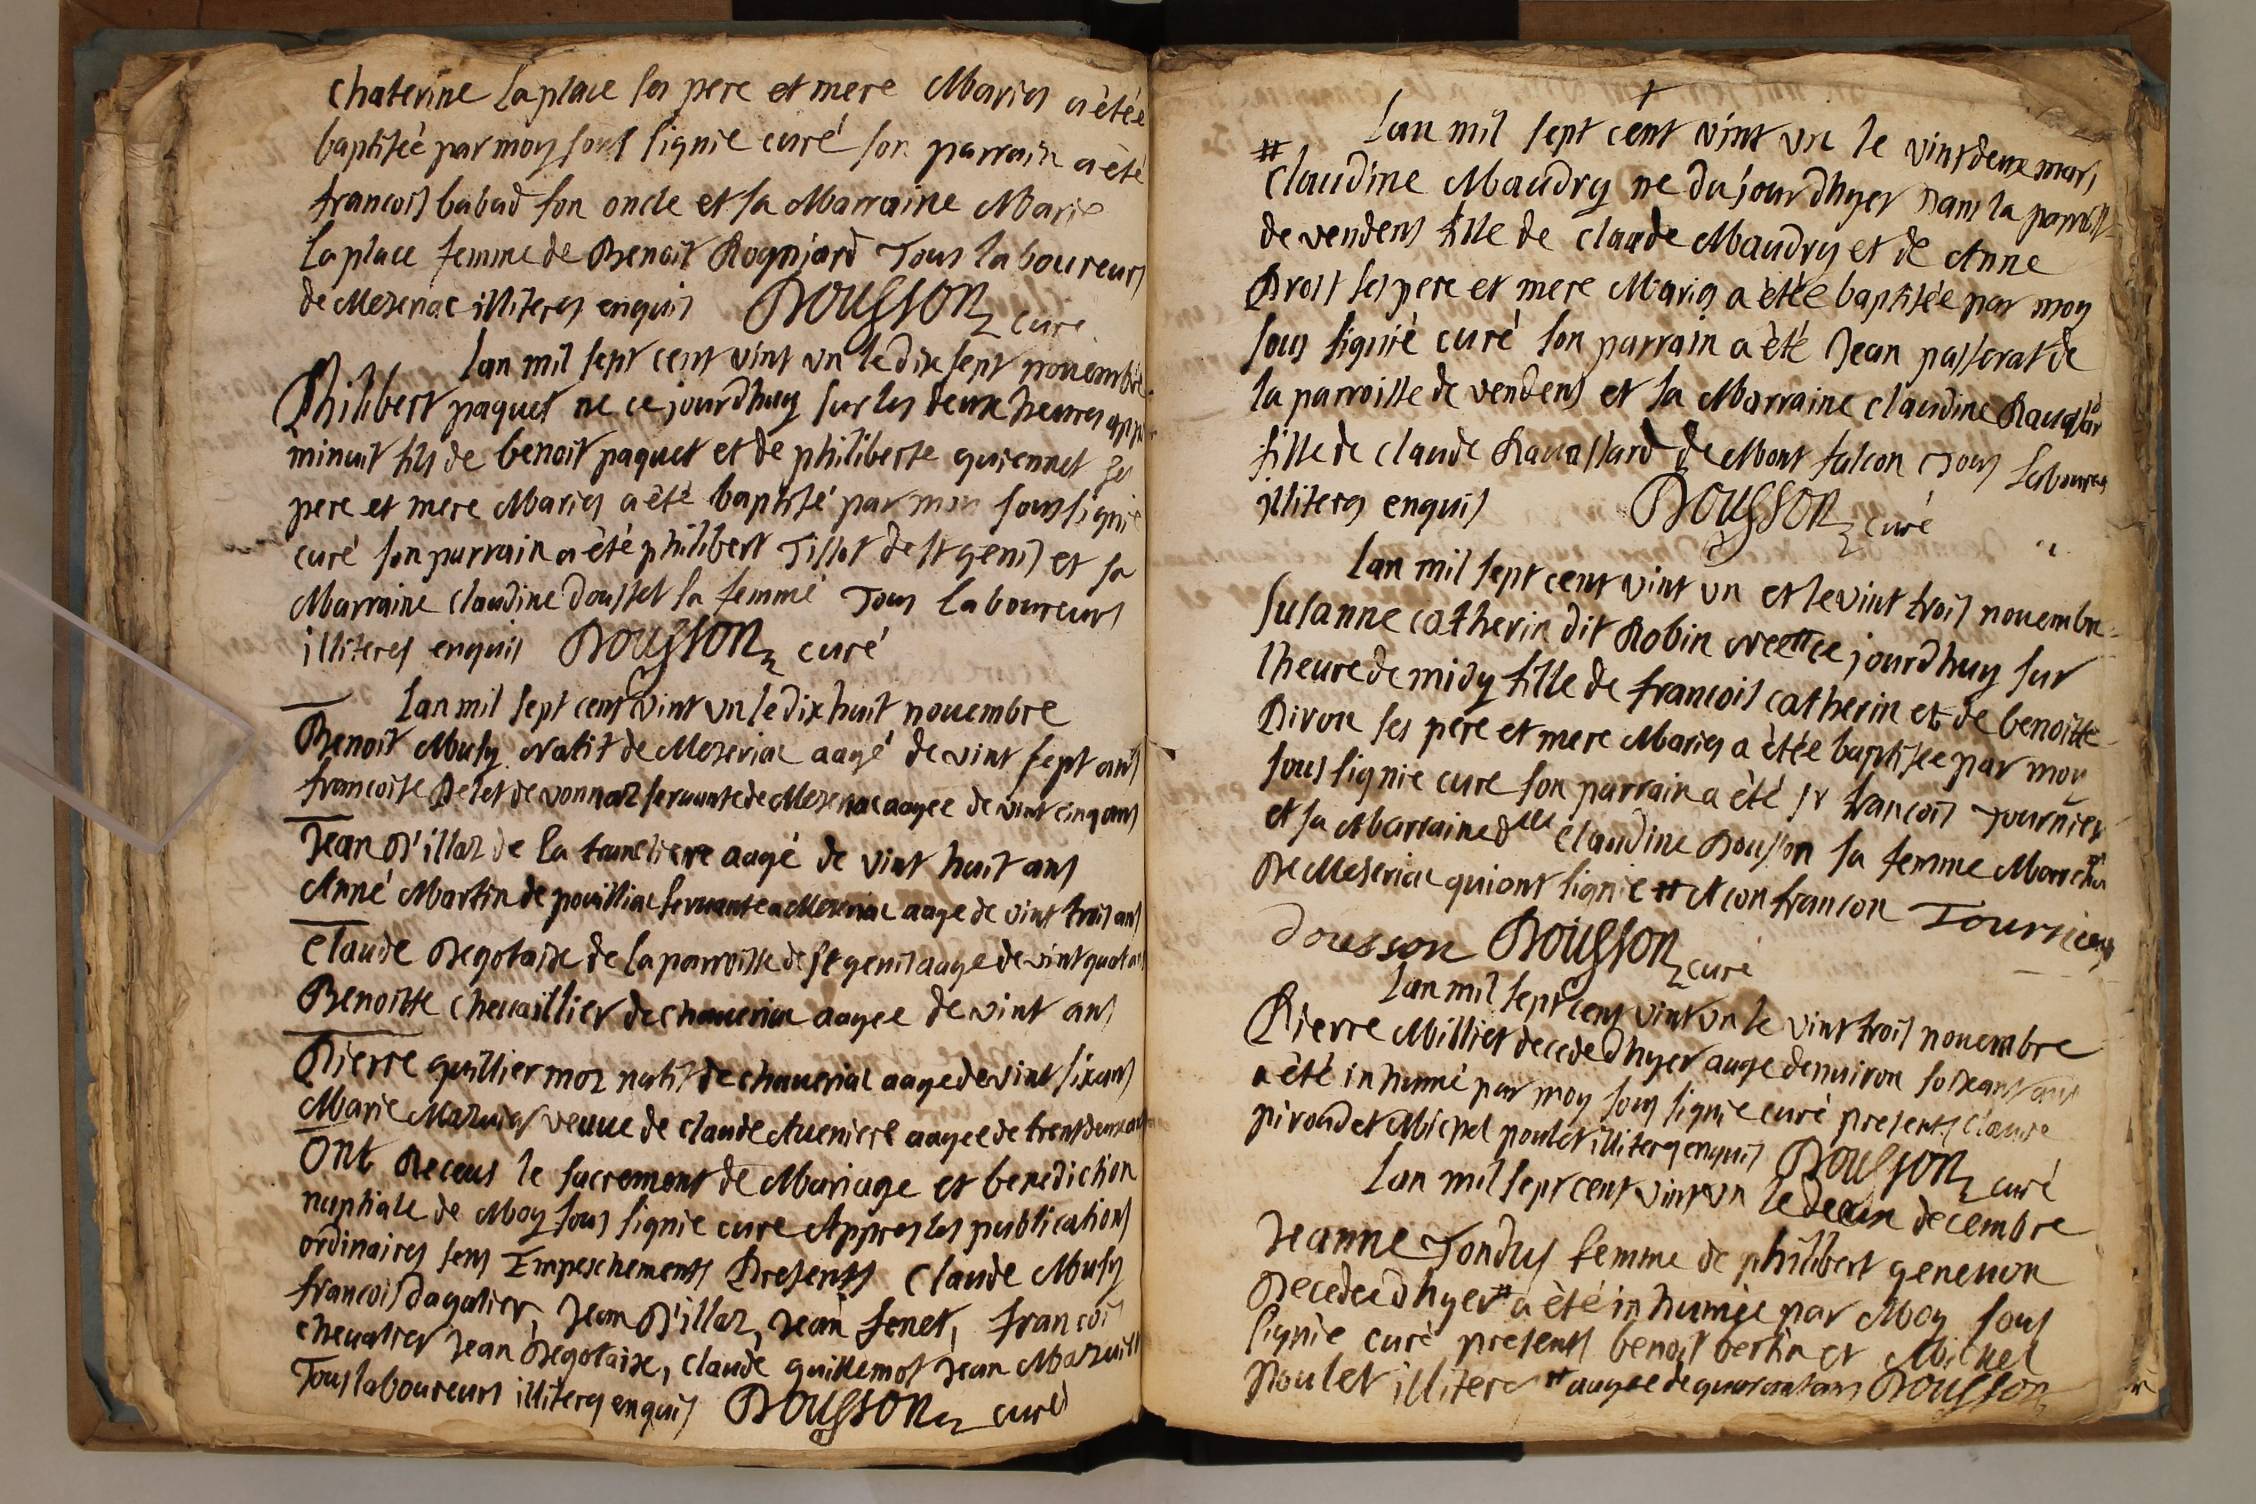 Chaterine Laplace ses pere et mere Maries a étée
baptiséé par moy sous signie curé son parrain a été
francois babad son oncle et sa Marraine Marie
Laplace femme de Benoit Rogniard Tous laboureurs
de Meseriac illiteres enquis Dousson curé
Lan mil sept cent vint vn le dix sept nouembre
Philibert paquet ne ce jourdhuy sur les deux heures appres
minuit fils de benoit paquet et de philiberte guiennet ses
pere et mere Maries a été baptisé par moy sous signie
curé son parrain a été philibert Tissot de st genis et sa
Marraine claudine doussel sa femme Tous laboureurs
illiteres enquis Dousson curé
Lan mil sept cent vint vn le dix huit nouembre
Benoit Musy Natif de Meseriac aagé de vint sept ans
francoise Pelet de vonnaz seruante de Meseriac aagee de vint cinq ans
Jean D'illaz de la trancliere aagé de vint huit ans
Anne Martin de pouilliac seruante a Meseriac aage de vint trois ans
Claude Degolaise de la parroisse de st genis aage de vint quatre
Benoitte cheuaillier de chaueriac aagee de vint ans
Pierre guilliermoz natif de chaueriac aage de vint six ans
Marie Mazuis veuue de claude Aueniere aagee de trent deux ans
Ont Receus le sacrement de Mariage et benediction
nuptiale de Moy sous signie cure Appres les publications
ordinaires sens Empeschements Presents Claude Musy
francois dagalier, Jean D'illaz, Jean fenet, francois
cheualier Jean Degolaise, claude guillemot Jean Mazuis
Tous laboureurs illiteres enquis Dousson curé
Lan mil sept cent vint vn le vint deux mars
# Claudine Maudry ne du jourdhyer Dans la parroiss
de vendens fille de claude Maudry et de Anne
Prost ses pere et mere Maries a étée baptisée par moy
sous signié curé son parrain a été Jean passerat de
la parroisse de vendens et sa Marraine claudine Rauassar
fille de claude Rauassard de Mont falcon Tous laboureurs
illiteres enquis Dousson curé
Lan mil sept cent vint vn et le vint trois nouembre
Susanne catherin dit Robin Nee ce jourdhuy sur
lheure de midy fille de francois catherin et de benoitte
Piron ses pere et mere Maries a étée baptisée par moy
sous signie cure son parrain a été sr francois Tournier
et sa Marraine dlle Claudine Dousson sa femme March
De Meseriac qui ont signie # Tournier
dousson Dousson curé
Lan mil sept cent vint vn le vint trois nouembre
Pierre Milliet decede dhyer aage denuiron soixant ans
a été inhumé par moy sous signie curé presents Claude
piroud et Michel poulet illiteres enquis Dousson curé
Lan mil sept cent vint vn le deux decembre
Jeanne Tondus femme de philibert geneuon
Decedee dhyer # a été inhumée par Moy sous
signie curé presents benoit bertin et Michel
Poulet illiteres # aagee de quarantans Dousson